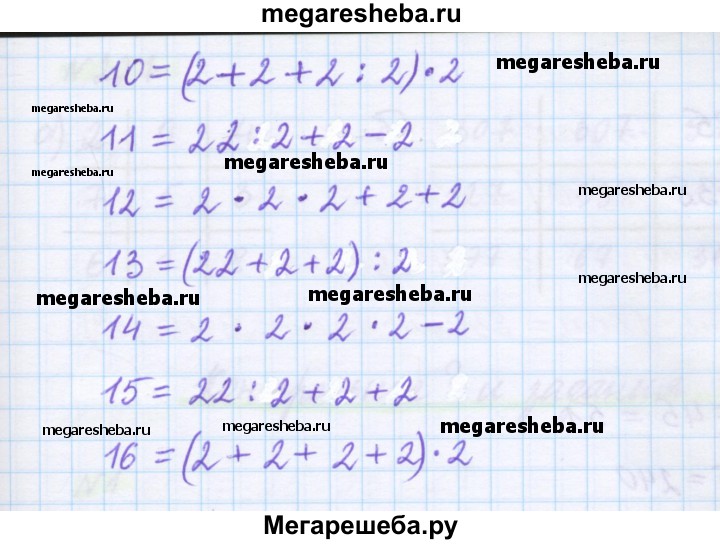 megaresheba.ru
10 = (2 + 2 + 2 : 2) · 2 megaresheba.ru
megaresheba.ru
11 = 22 : 2 + 2 - 2
megaresheba.ru
megaresheba.ru
12 = 2 · 2 · 2 + 2 + 2 megaresheba.ru
13 = (22 + 2 + 2) : 2
megaresheba.ru megaresheba.ru
14 = 2 · 2 · 2 · 2 - 2
15 = 22 : 2 + 2 + 2
megaresheba.ru megaresheba.ru megaresheba.ru
16 = (2 + 2 + 2 + 2) · 2
Мегарешеба.ру